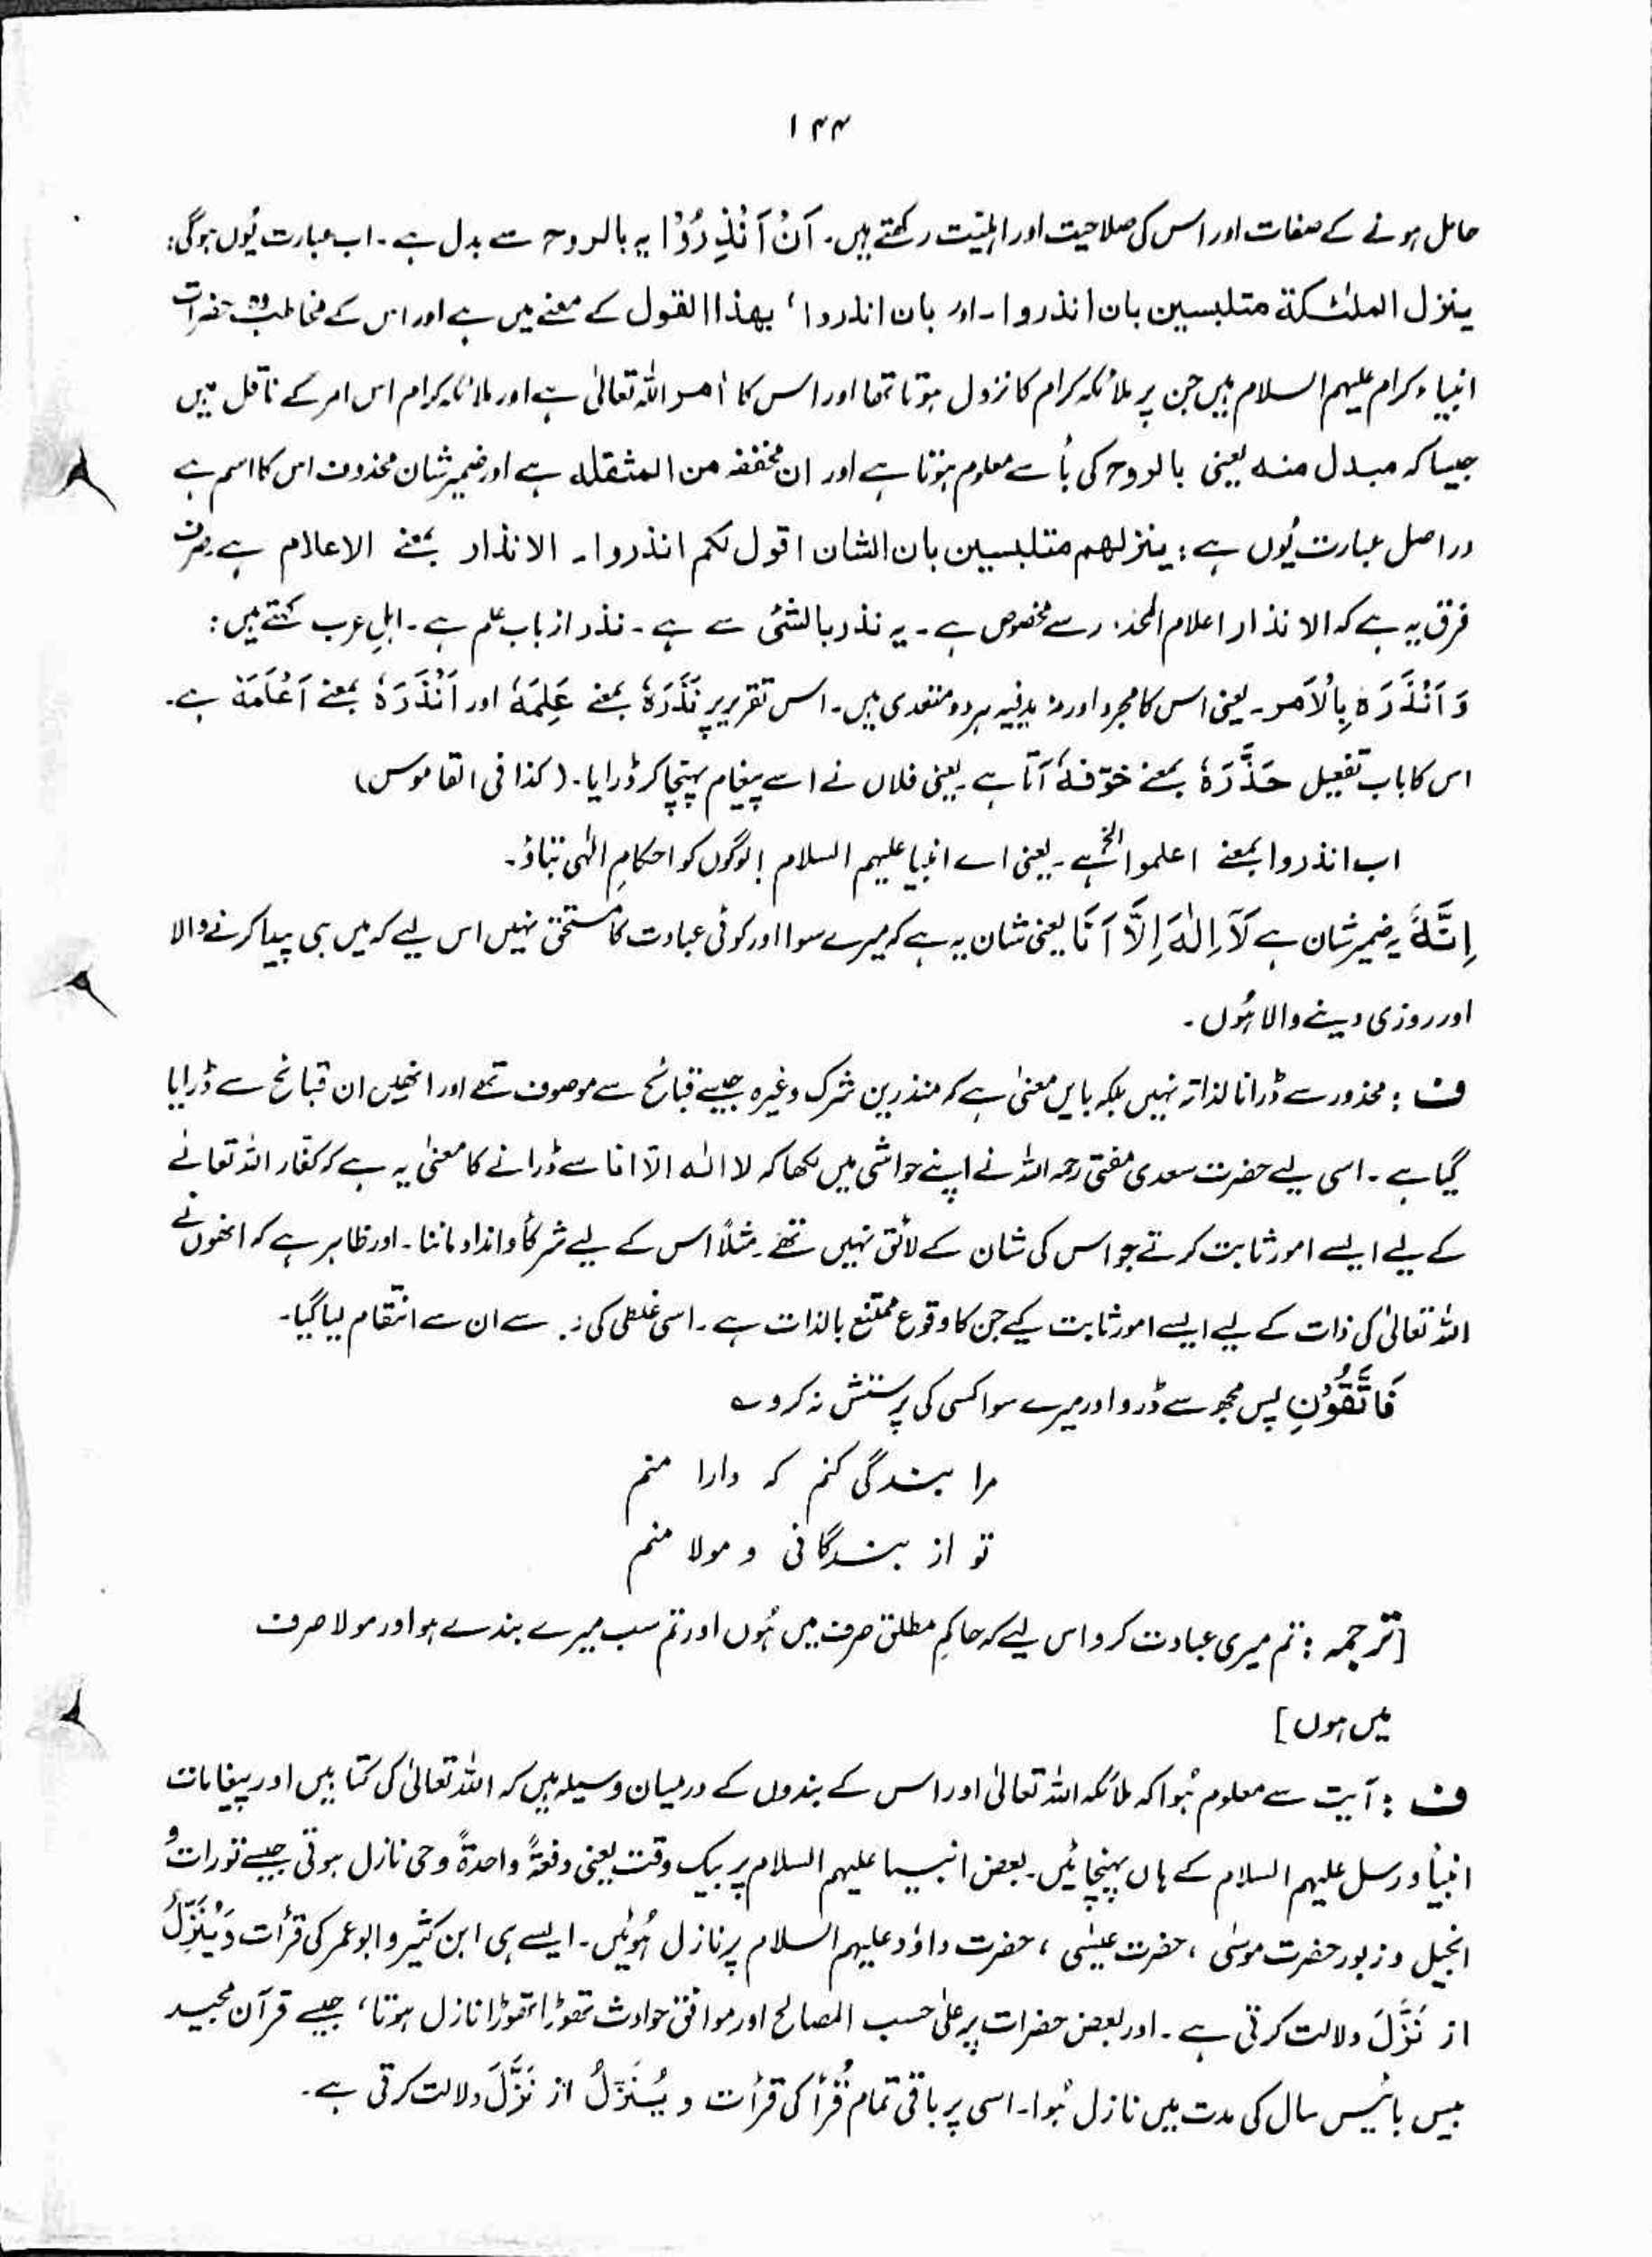 ۱۴۴
حامل ہونے کے صفات اور اس کی صلاحیت اور اہلیت رکھتے ہیں۔ اَنْ اَنْذِرُوْا یہ بالروح سے بدل ہے۔ اب عبارت یُوں ہوگی:
ینزل الملٰئکة متلبسین بان انذروا۔ اور بان انذروا، بھذا القول کے معنے میں ہے اور اس کے مخاطب وہ حضرات
انبیاء کرام علیہم السلام ہیں جن پر ملائکہ کرام کا نزول ہوتا تھا اور اس کا اٰمر اللہ تعالیٰ ہے اور ملائکہ کرام اس امر کے ناقل ہیں
جیسا کہ مبدل منہ یعنی بالروح کی بأ سے معلوم ہوتا ہے اور ان مخففہ من المثقلہ ہے اور ضمیر شان محذوف اس کا اسم ہے
دراصل عبارت یُوں ہے: ینزلھم متلبسین بان الشان اقول لکم انذروا۔ الانذار بمعنے الاعلام ہے صرف
فرق یہ ہے کہ الانذار اعلام المحذور سے مخصوص ہے۔ یہ نذر بالشئ سے ہے۔ نذر از باب علم ہے۔ اہلِ عرب کہتے ہیں:
وَ اَنْذَرَہٗ بِالْاَمر۔ یعنی اس کا مجرد اور مزید فیہ ہر دو متعدی ہیں۔ اس تقریر پر نَذَرَہٗ بمعنے عَلِمَہٗ اور اَنْذَرَہٗ بمعنے اَعْلَمَہٗ ہے۔
اس کا باب تفعیل حَذَّرَہٗ بمعنے خوّفہٗ آتا ہے۔ یعنی فلاں نے اسے پیغام پہنچا کر ڈرایا۔ (کذا فی القاموس)
اب انذروا بمعنے اعلموا الخ ہے۔ یعنی اے انبیا علیہم السلام! لوگوں کو احکامِ الٰہی بتاؤ۔
اِنَّہٗ یہ ضمیر شان ہے لَآ اِلٰہَ اِلَّا اَنَا یعنی شان یہ ہے کہ میرے سوا اور کوئی عبادت کا مستحق نہیں اس لیے کہ میں ہی پیدا کرنے والا
اور روزی دینے والا ہُوں۔
ف : محذور سے ڈرانا لذاتہ نہیں بلکہ بایں معنیٰ ہے کہ منذرین شرک وغیرہ جیسے قبائح سے موصوف تھے اور انھیں ان قبائح سے ڈرایا
گیا ہے۔ اسی لیے حضرت سعدی مفتی رحمہ اللہ نے اپنے حواشی میں لکھا کہ لا الٰہ الّا انا سے ڈرانے کا معنیٰ یہ ہے کہ کفار اللہ تعالےٰ
کے لیے ایسے امور ثابت کرتے جو اس کی شان کے لائق نہیں تھے۔ مثلاً اس کے لیے شرکأ و انداد ماننا۔ اور ظاہر ہے کہ انھوں نے
اللہ تعالیٰ کی ذات کے لیے ایسے امور ثابت کیے جن کا وقوع ممتنع بالذات ہے۔ اسی غلطی کی سے ان سے انتقام لیا گیا۔
فَاتَّقُوْنِ پس مجھ سے ڈرو اور میرے سوا کسی کی پرستش نہ کرو ؎
مرا بندگی کنم کہ دارا منم
تو از بندگانی و مولا منم
[ترجمہ : تم میری عبادت کرو اس لیے کہ حاکمِ مطلق صرف میں ہُوں اور تم سب میرے بندے ہو اور مولا صرف
میں ہوں]
ف : آیت سے معلوم ہُوا کہ ملائکہ اللہ تعالیٰ اور اس کے بندوں کے درمیان وسیلہ ہیں کہ اللہ تعالیٰ کی کتابیں اور پیغامات
انبیأ و رسل علیہم السلام کے ہاں پہنچائیں۔ بعض انبیا علیہم السلام پر بیک وقت یعنی دفعۃً واحدۃً وحی نازل ہوتی جیسے تورات و
انجیل و زبور حضرت موسٰی ، حضرت عیسٰی ، حضرت داؤد علیہم السلام پر نازل ہُوئیں۔ ایسے ہی ابن کثیر و ابو عمر کی قرأت وَیُنْزِلُ
از نَزَّلَ دلالت کرتی ہے۔ اور بعض حضرات پر علیٰ حسب المصالح اور موافق حوادث تھوڑا تھوڑا نازل ہوتا، جیسے قرآن مجید
بیس بائیس سال کی مدت میں نازل ہُوا۔ اسی پر باقی تمام قُرأ کی قرأت و یُنَزِّلُ از نَزَّلَ دلالت کرتی ہے۔